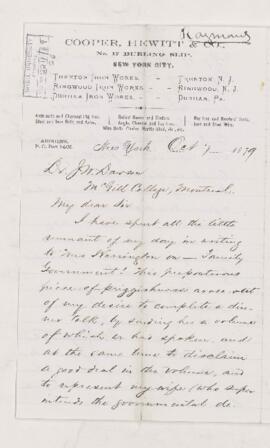 Raymond
COOPER, HEWITT & Co.
No. 17 BURLING SLIP,
NEW YORK CITY.
TRENTON IRON WORKS, - - TRENTON, N. J.
RINGWOOD IRON WORKS, - - RINGWOOD, N. J.
DURHAM IRON WORKS, - - DURHAM, PA.
ADDRESS,
New York, Oct 7 1879
Dr J. W. Dawson
McGill College, Montreal.
My dear Sir
I have spent all the little
remnant of my day in writing
to Mrs Harrington on — Family
Government! This preposterous
piece of priggishness arose out
of my desire to complete a din-
ner talk, by sending her a volume
of which we had spoken, and
at the same time to disclaim
a good deal in the volume, and
to represent my wife (who super
intends the governmental de-